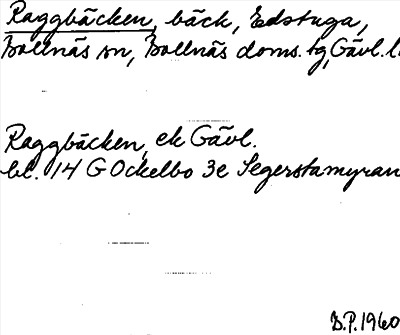 Raggbäcken, bäck, Edstuga,
Bollnäs sn, Bollnäs doms. tg, Gävl. l.
Raggbäcken, ek Gävl.
bl. 14 G Ockelbo 3e Segerstamyran
B.P. 1960